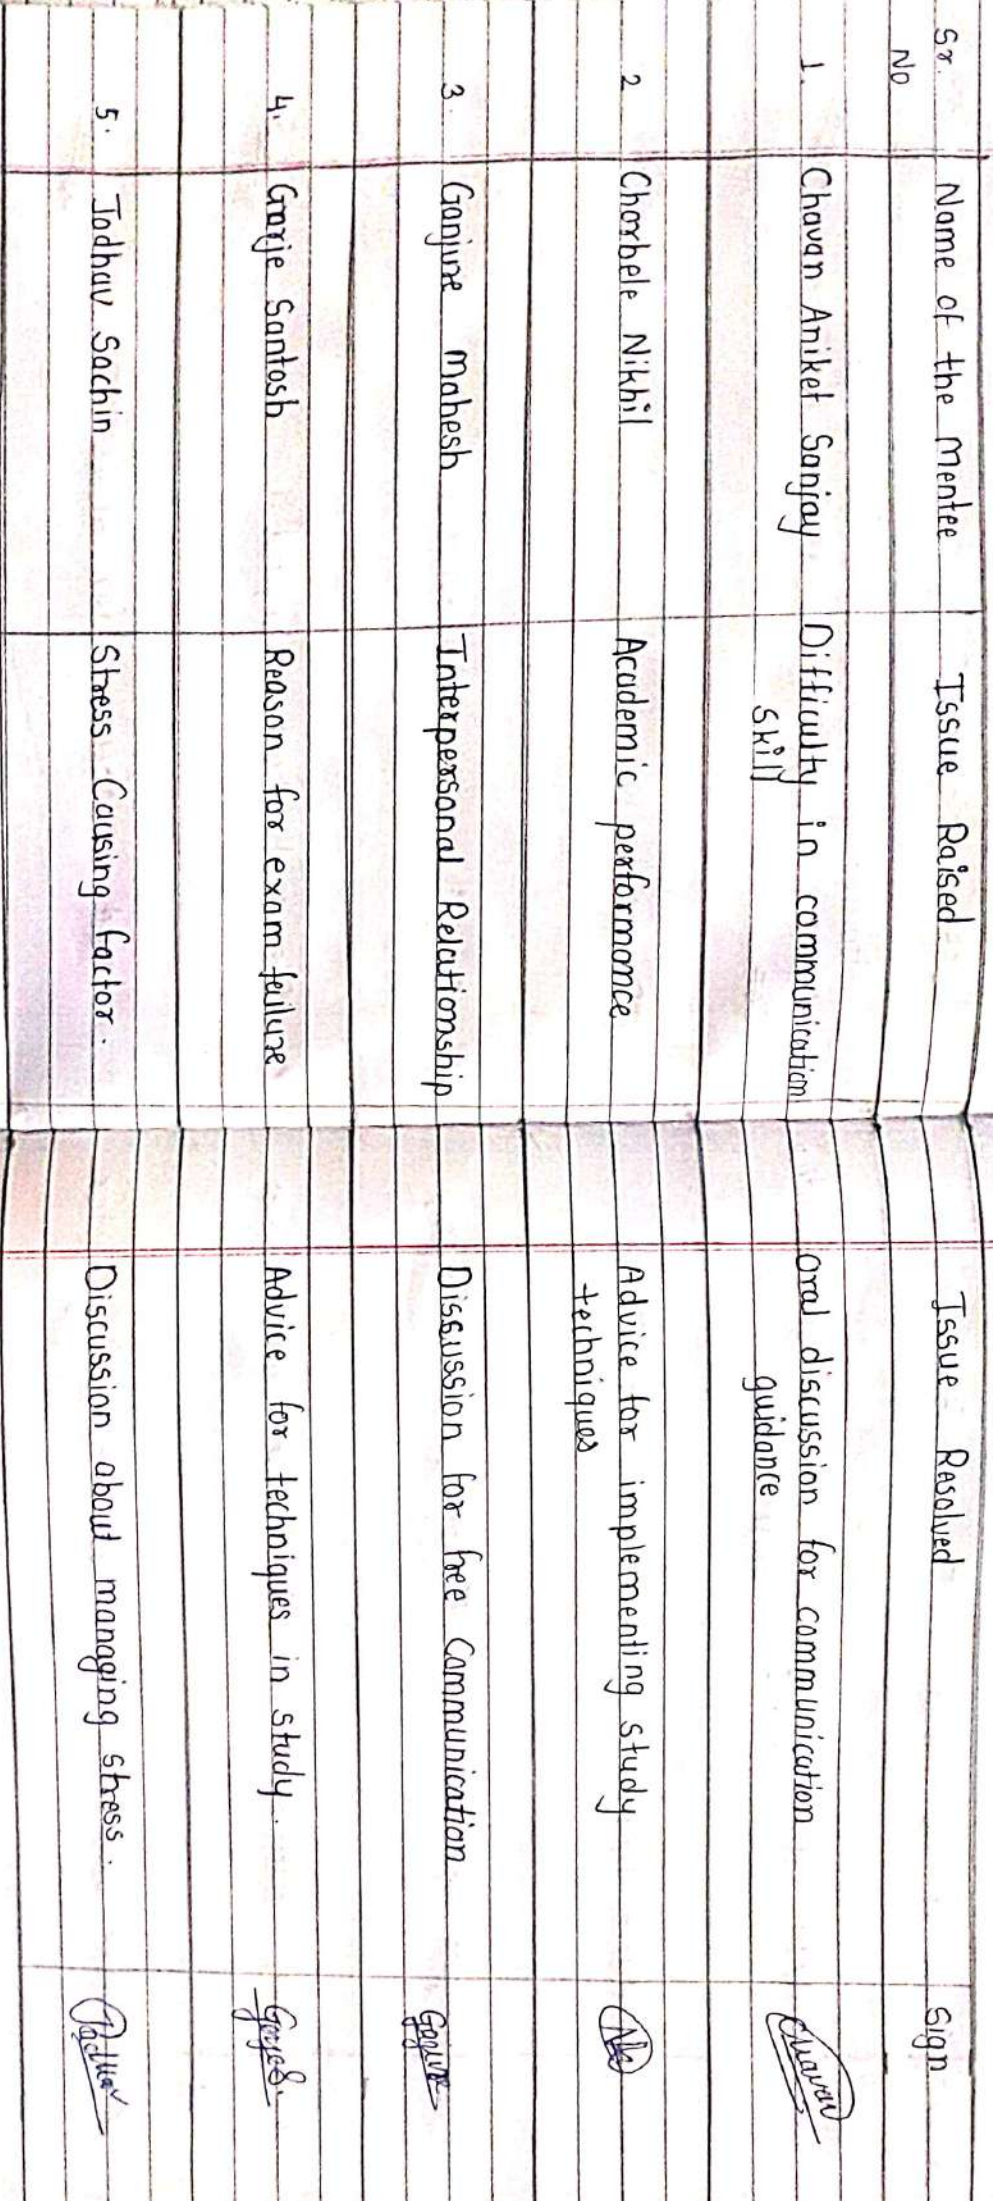 Sr. No Name of the Mentee Issue Raised Issue Resolved Sign
1. Chavan Aniket Sanjay Difficulty in communication skill Oral discussion for communication guidance Chavan
2 Chorbele Nikhil Academic performance Advice for implementing study techniques
3. Ganjure Mahesh Interpersonal Relationship Disscussion for free Communication
4. Garje Santosh Reason for exam failure Advice for techniques in study.
5. Jadhav Sachin Stress Causing factor. Discussion about managing stress. Jadhav